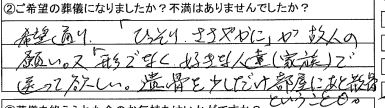 ②ご希望の葬儀になりましたか？不満はありませんでしたか？
希望通り、「ひっそり、ささやかに」が故人の
願い。又「形でなく好きな人達（家族）で
送って欲しい。遺骨を少しだけ部屋にあと散骨
ということ。